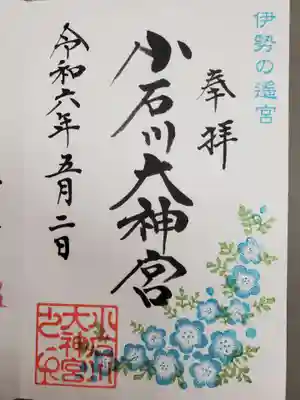 伊勢の遙宮
奉拝
小石川大神宮
令和六年五月二日
小石川
大神宮